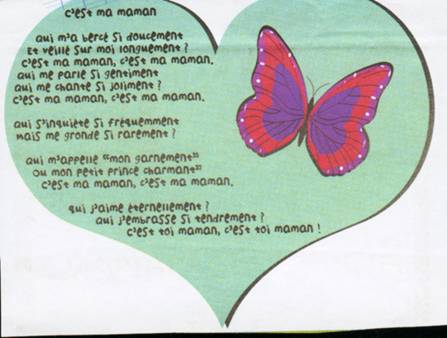 c'est ma maman
qui m'a bercé si doucement
Et veillé sur moi longuement ?
c'est ma maman, c'est ma maman.
qui me parle si gentiment
qui me chante si joliment ?
c'est ma maman, c'est ma maman.
qui s'inquiète si fréquemment
mais me gronde si rarement ?
qui m'appelle "mon garnement"
ou mon petit prince charmant"
c'est ma maman, c'est ma maman.
qui j'aime éternellement ?
qui j'embrasse si tendrement ?
c'est toi maman, c'est toi maman !